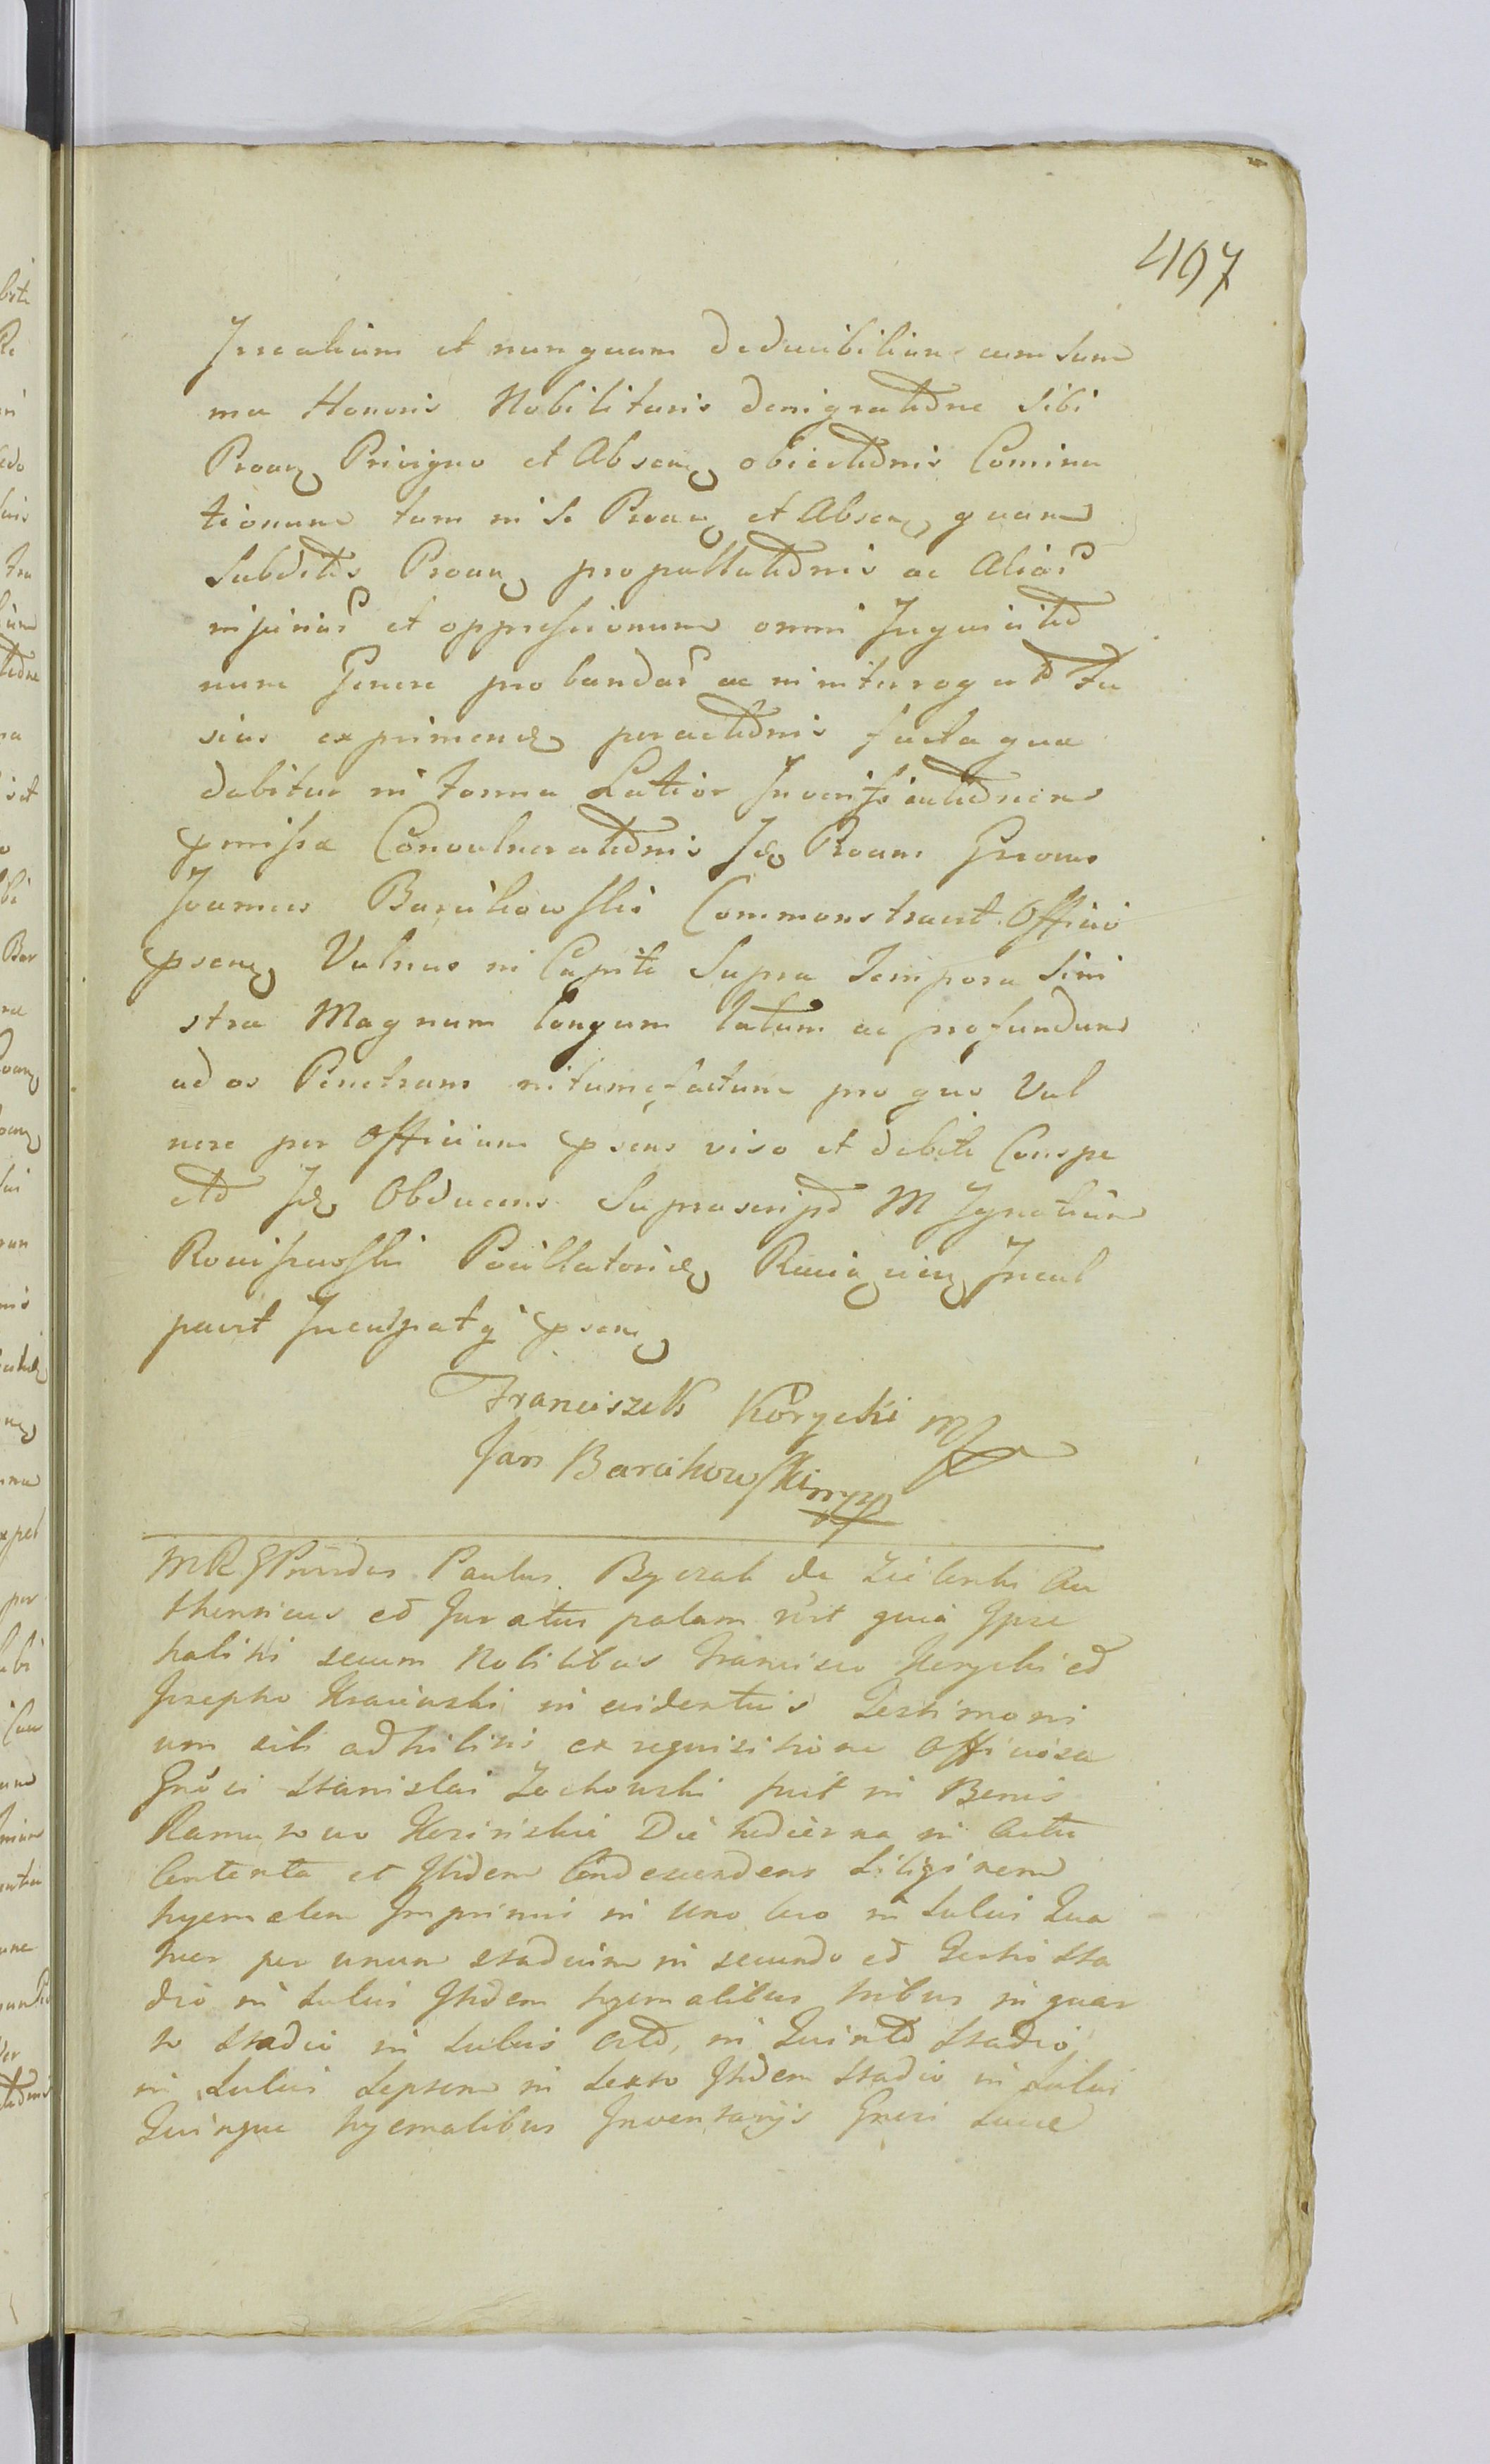 497
Irrealium et nunquam deducibilium cum Sum
ma Honoris Nobilitaris denigratione Sibi
Proan Privigno et Absen obiectionis Comina
tionum tam in Se Proan et Absen quam
Subditis Proan propallationis ac Aliar
injuriar et oppressionum omni Inquisitio
num Genere probandar ac in interrogat Fu
sius exprimend peractionis facta qua
dabitur in Forma Latior Inverificationem
pmissa Convulnerationis Id Proans Grosus
Joannes Barcikowski Commonstravit Officio
psen Vulnus in Capite Supra Tempora Sini
stra Magnum longum latum ac profundum
ad os Penetrans intumefactum pro quo Vul
nere per Officium psens viso et debite Conspe
cto Id Obducens Suprascript M Ignatium
Pocillatorie Incul
pavit Inculpatq psen
Franciszek Korycki mp
Jan Barcikowski mpp
MRG Provdus Paulus Byczak de Zielenki Au
thenticus et Juratus palam rcit quia Ipse
habitis secum Nobilibus Francisco Korycki et
Josepho Krasuski in evidentius Testimoni
um sibi adhibitis ex requisitione Officiosa
Gnosi Stanislai Zochowski fuit in Bonis
Die hodierna in Actu
Contenta et Ibidem Condescendens Siliginem
hyemalem Imprimis in Uno Agro in Sulcis Qua
tuor per unum stadium in secundo et Tertio Sta
dio in Sulcis Ibidem hyemalibus tribus in quar
to Stadio in Sulcis octo, in Quinto Stadio
in Sulcis Septem in Sexto Ibidem Stadio in Sulcis
Quinque hyemalibus Inventarijs Gnosi